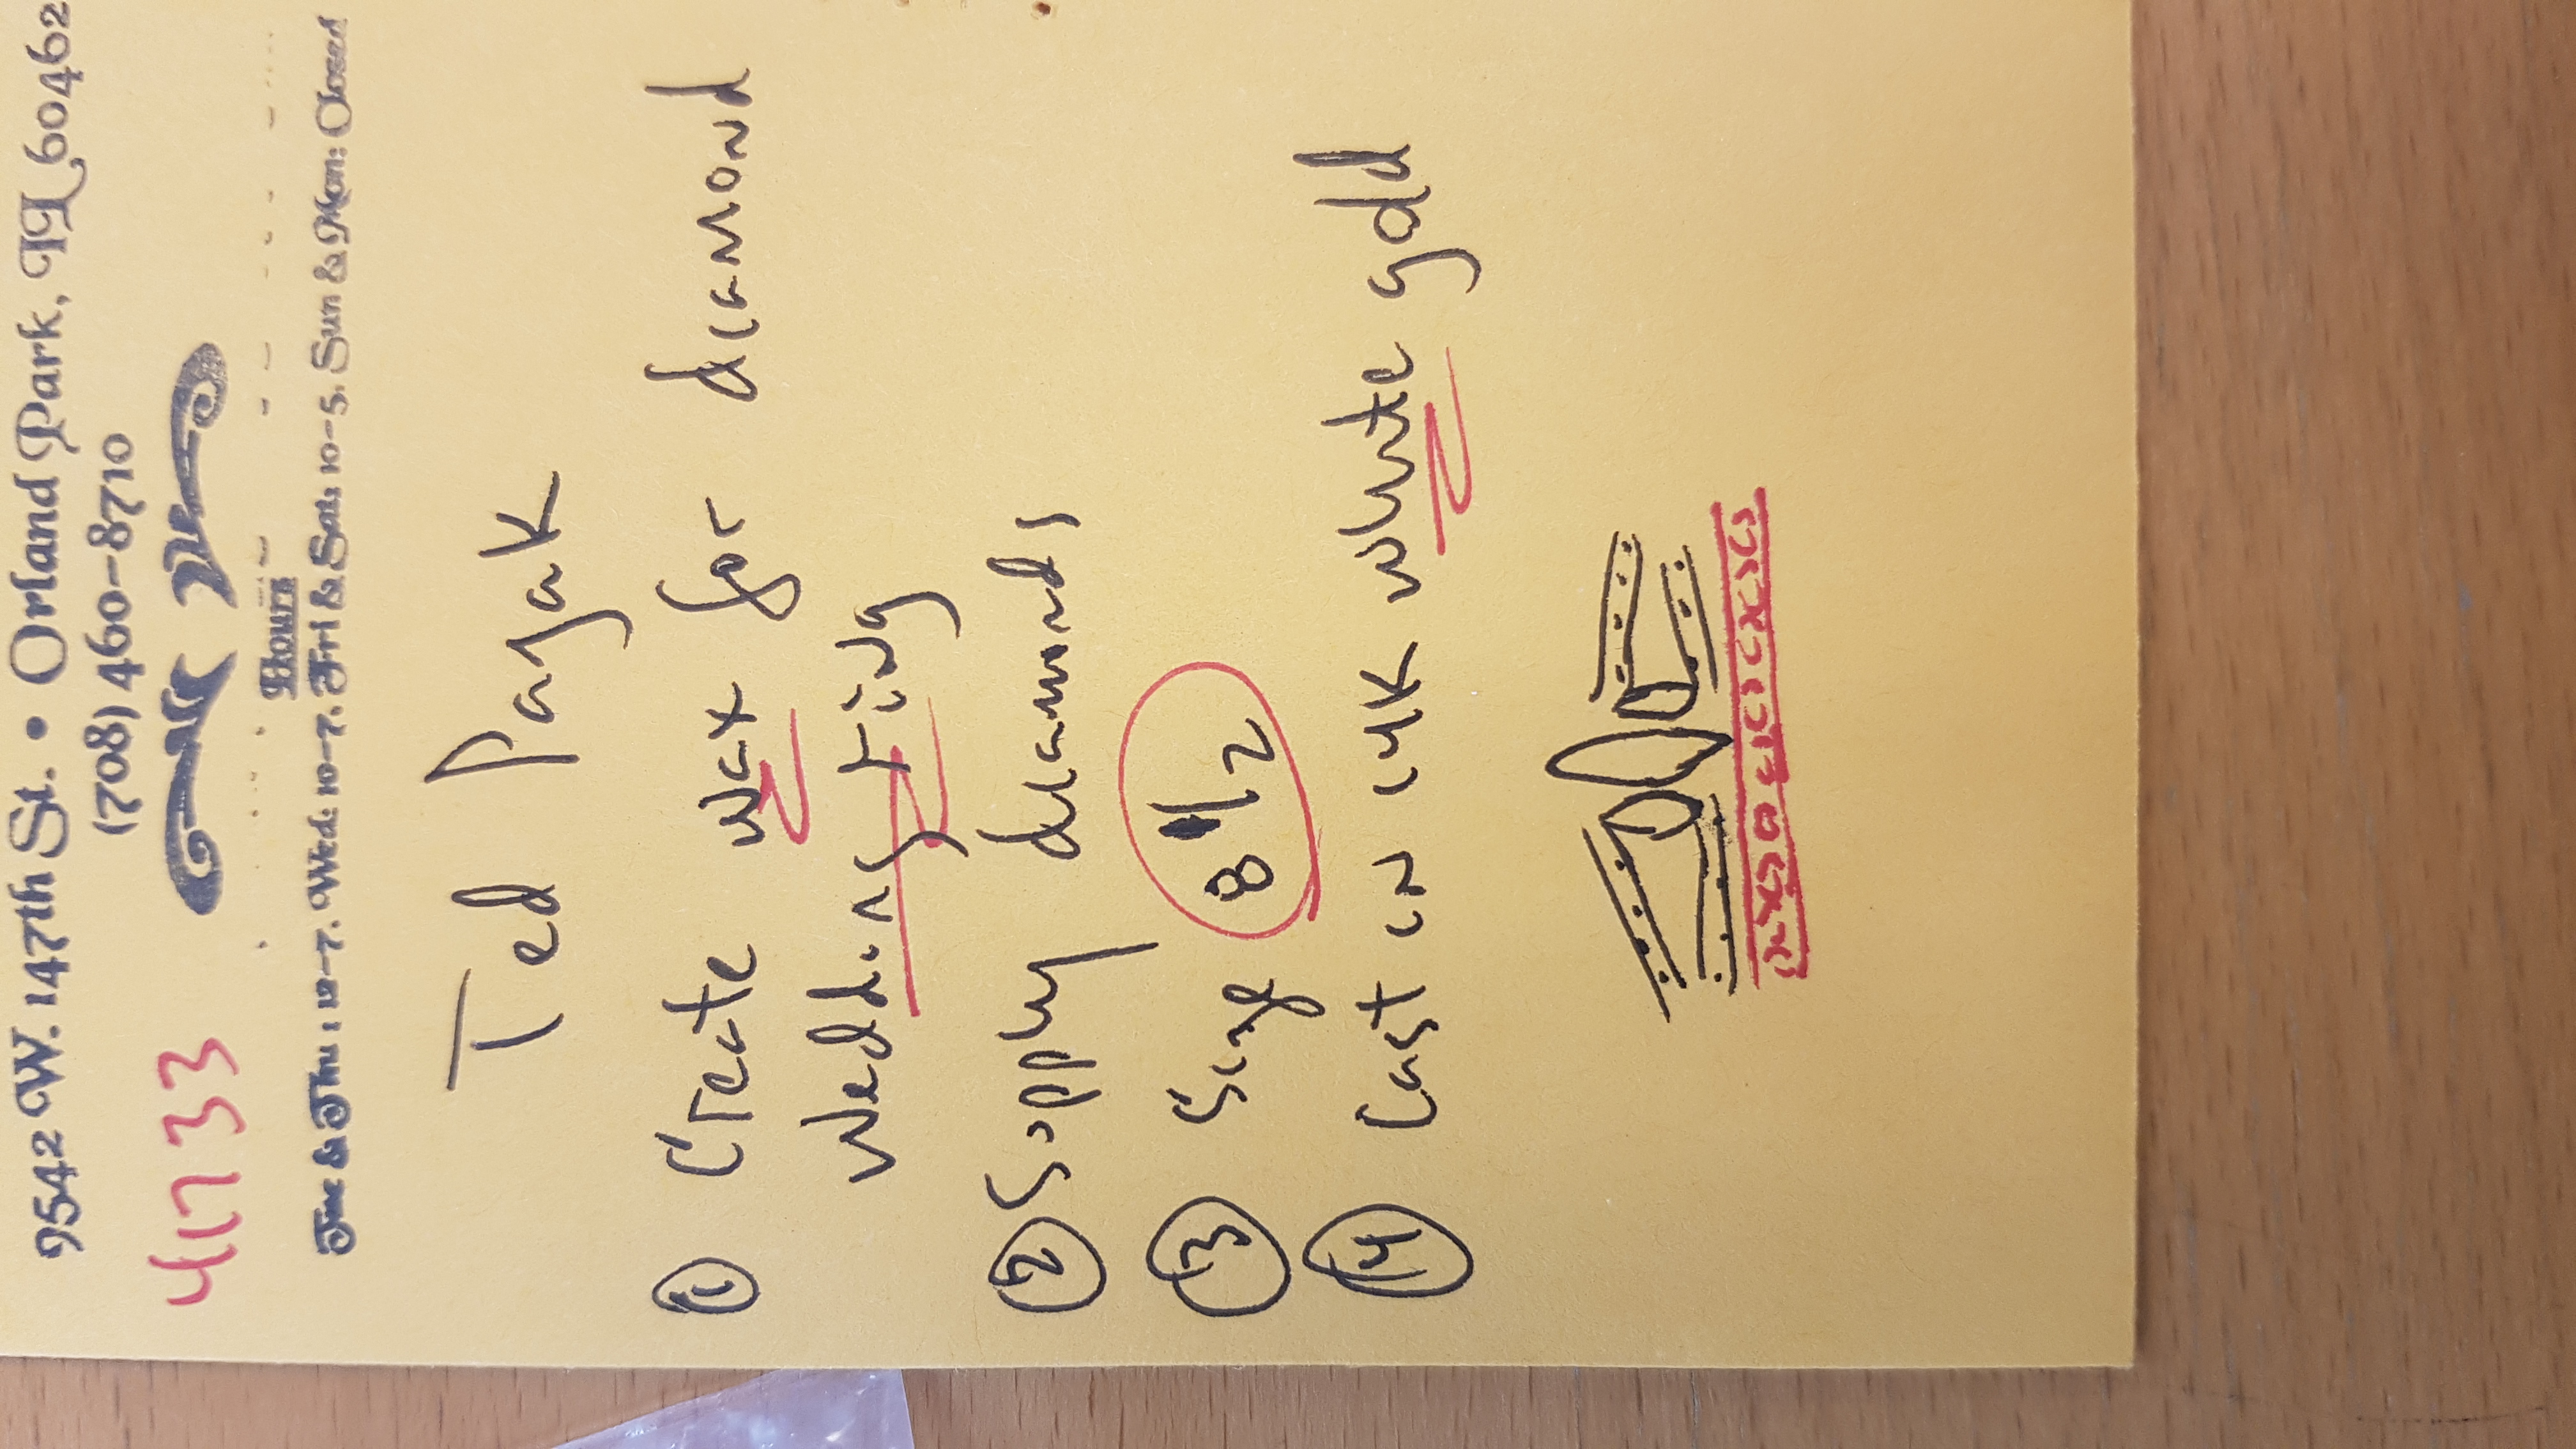 9542 W. 147th St. • Orland Park, IL 60462
(708) 460-8710
41733
Hours
Tue & Thu : 12-7, Wed: 10-7, Fri & Sat: 10-5, Sun & Mon: Closed
Ted Pajak
1 Create wax for diamond
wedding ring
2 Supply diamonds
3 Size 8 1/2
4 Cast in 14K white gold